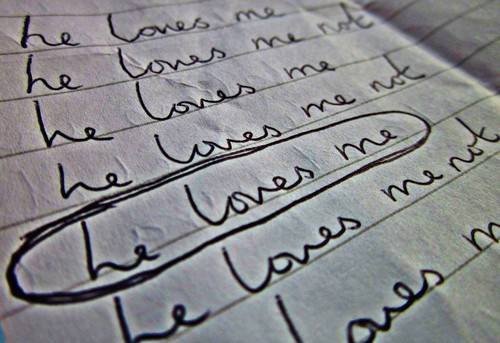 he loves me
he loves me not
he loves me
he loves me not
he loves me
he loves me not
loves